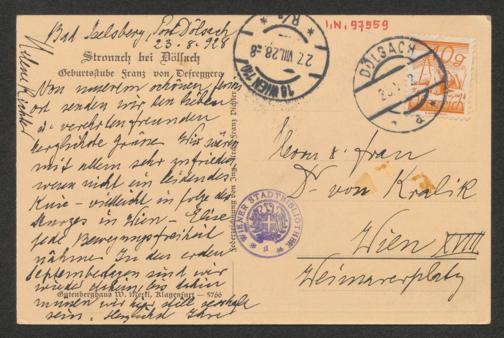 Bad Iselsberg, Post Dölsach
23.8.1928
Stronach bei Dölsach
Geburtsstube Franz von Defreggers
Von unserem schönen Ferien
ort senden wir den lieben
u. verehrten Freunden
herzlichste Grüsse. Wir wären
mit allem sehr zufrieden
wenn nicht ein leidendes
Knie - vielleicht in folge des
Sturzes in Wien - Elise
jede Bewegungsfreiheit
nähme. In den ersten
Septembertagen sind wir
wieder daheim, bis dahin
müssen wir
sein. Herzlichst Ihre
Helene Richter
Gutenberghaus W. Merkl, Klagenfurt — 5766
Federzeichnung von Franz Pichler
I.N. 97559
18 WIEN 110
27.VIII.28-8
DÖLSACH
WIENER STADTBIBLIOTHEK
Herrn & Frau
Dr von Kralik
Wien XVIII
Weimarerplatz